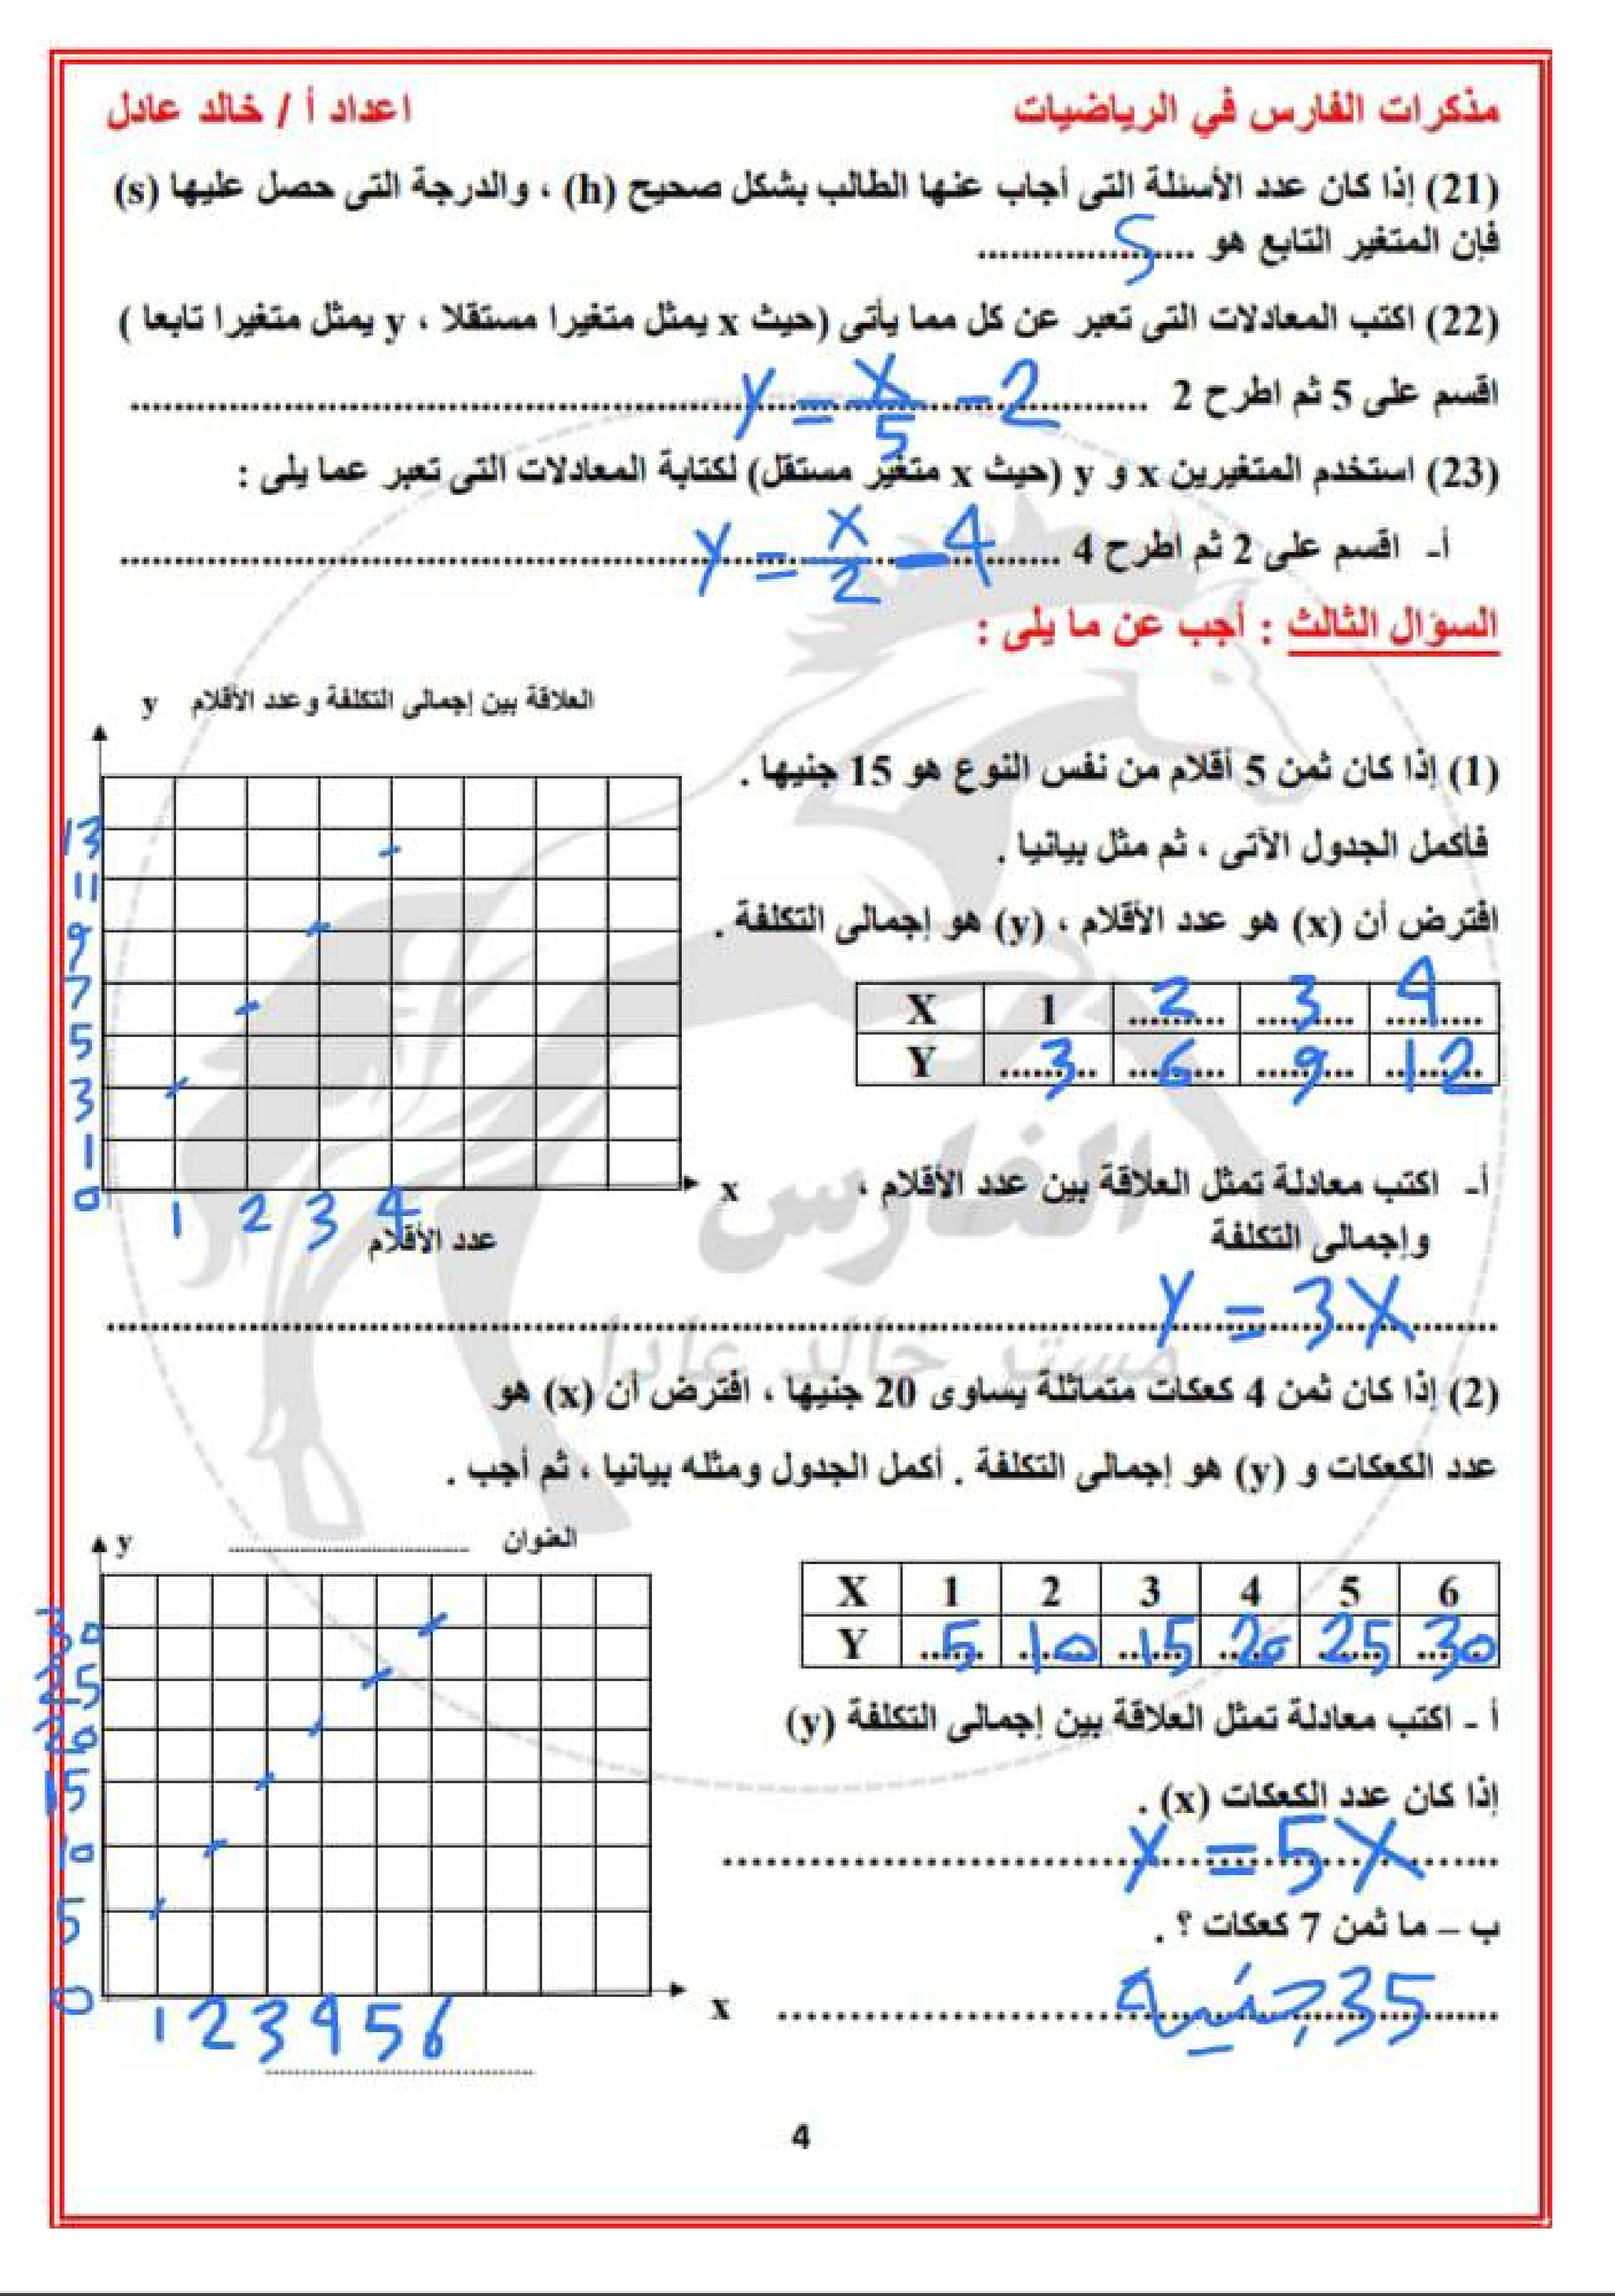 مذكرات الفارس في الرياضيات
اعداد أ / خالد عادل
(21) إذا كان عدد الأسئلة التى أجاب عنها الطالب بشكل صحيح (h) ، والدرجة التى حصل عليها (s)
فإن المتغير التابع هو .................... S
(22) اكتب المعادلات التى تعبر عن كل مما يأتى (حيث x يمثل متغيرا مستقلا ، y يمثل متغيرا تابعا )
اقسم على 5 ثم اطرح 2 .................... y = x/5 - 2
(23) استخدم المتغيرين x و y (حيث x متغير مستقل) لكتابة المعادلات التى تعبر عما يلى :
أ- اقسم على 2 ثم اطرح 4 .................... y = x/2 - 4
السؤال الثالث : أجب عن ما يلى :
العلاقة بين إجمالى التكلفة وعدد الأقلام y
(1) إذا كان ثمن 5 أقلام من نفس النوع هو 15 جنيها .
فأكمل الجدول الآتى ، ثم مثل بيانيا .
افترض أن (x) هو عدد الأقلام ، (y) هو إجمالى التكلفة .
X 1 2 3 4
Y 3 6 9 12
13
11
9
7
5
3
1
0
1 2 3 4
x
عدد الأقلام
أ- اكتب معادلة تمثل العلاقة بين عدد الأقلام ،
وإجمالى التكلفة
y = 3x
الفارس
مستر خالد عادل
(2) إذا كان ثمن 4 كعكات متماثلة يساوى 20 جنيها ، افترض أن (x) هو
عدد الكعكات و (y) هو إجمالى التكلفة . أكمل الجدول ومثله بيانيا ، ثم أجب .
العنوان ....................
y
X 1 2 3 4 5 6
Y 5 10 15 20 25 30
30
25
20
15
10
5
0
1 2 3 4 5 6
x
أ - اكتب معادلة تمثل العلاقة بين إجمالى التكلفة (y)
إذا كان عدد الكعكات (x) .
y = 5x
ب – ما ثمن 7 كعكات ؟ .
35 جنيه
4